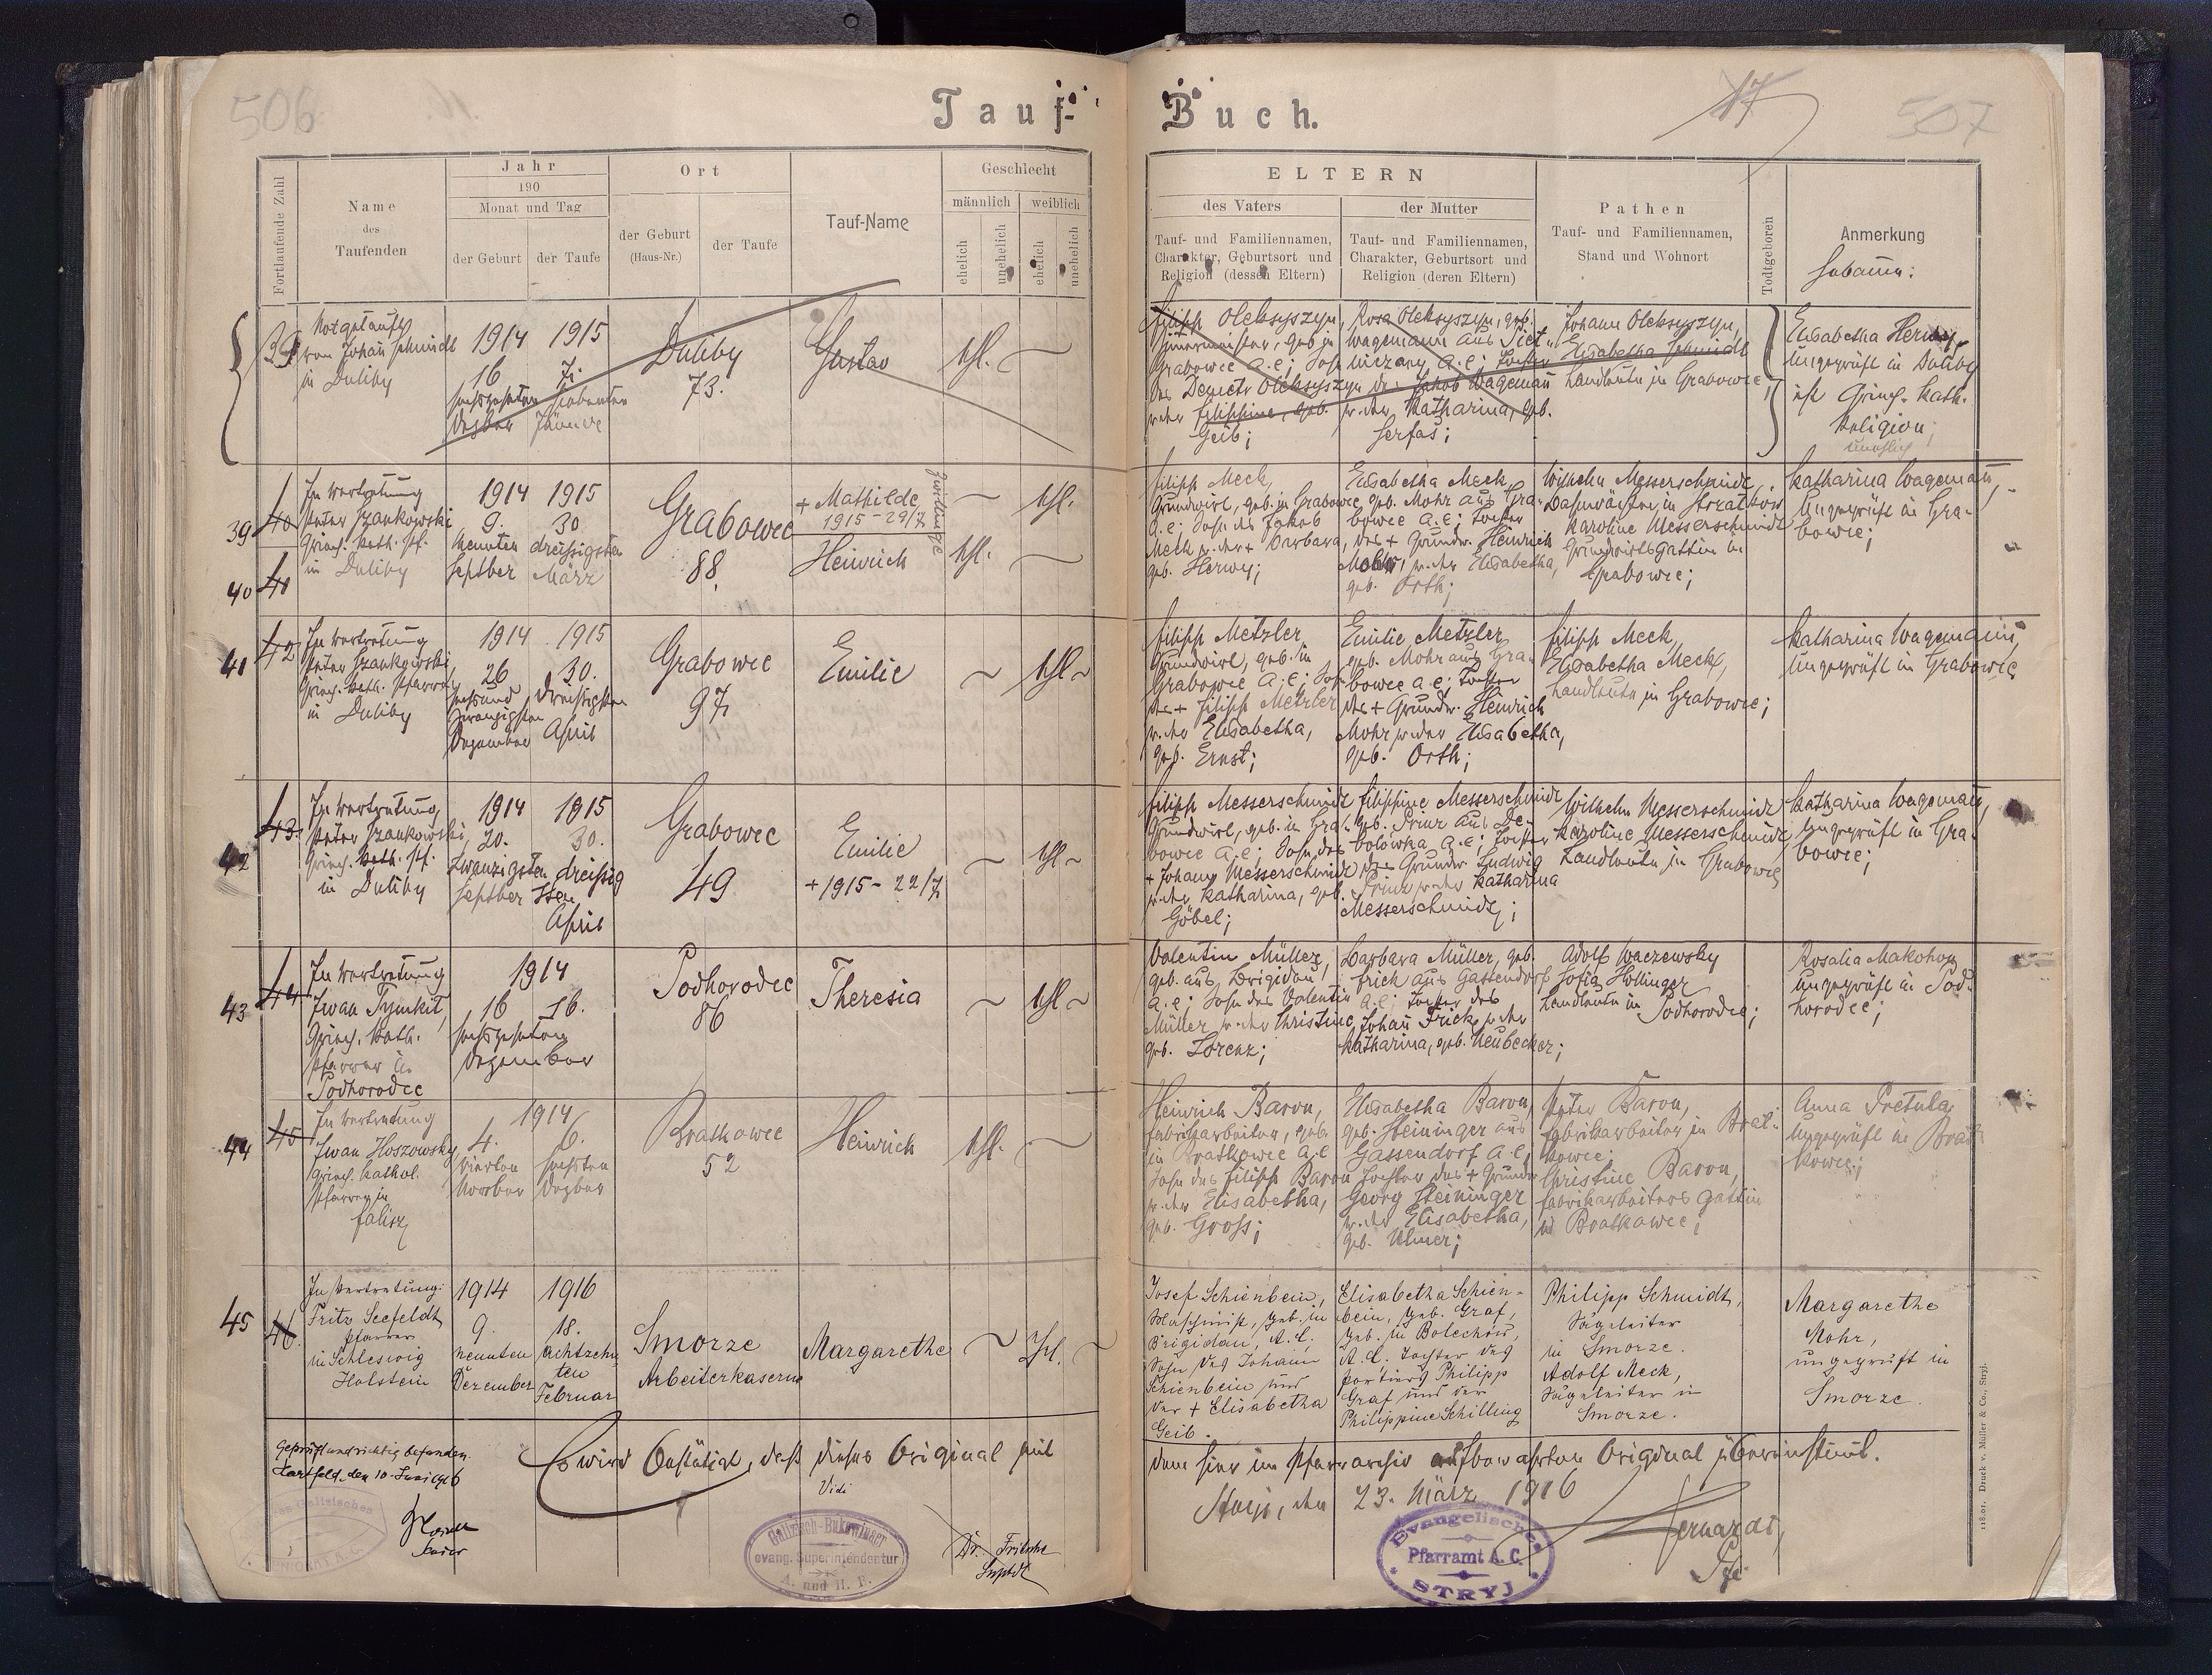 506
Tauf-
Buch.
17
507
Fortlaufende Zahl
Name
des
Taufenden
Jahr
190
Monat und Tag
der Geburt
der Taufe
Ort
der Geburt
(Haus-Nr.)
der Taufe
Tauf-Name
Geschlecht
männlich
weiblich
ehelich
unehelich
ehelich
unehelich
ELTERN
des Vaters
Tauf- und Familiennamen,
Charakter, Geburtsort und
Religion (dessen Eltern)
der Mutter
Tauf- und Familiennamen,
Charakter, Geburtsort und
Religion (deren Eltern)
Pathen
Tauf- und Familiennamen,
Stand und Wohnort
Todtgeboren
Anmerkung
Hebamme:
39
Notgetauft
von Johann Schmidt
in Duliby
1914
16
sechszehnten
Dezber
1915
7.
siebenten
Jänner
Duliby
73.
Gustav
ehl.
Filipp Oleksyszyn,
geb. in
Grabowce A.C; Sohn
des Demetr Oleksyszyn
u. der Filippine, geb.
Geib;
Rosa Oleksyszyn, geb.
Wagemann aus
A.C; Tochter
des Jakob Wagemann
u. der Katharina, geb.
Serfas;
Johann Oleksyszyn,
Elisabetha Schmidt
Landleute in Grabowce;
Elisabetha Herwy,
Ungeprüft in Duliby
ist Griech. Kath.
Religion;
39 40
40 41
In Vertretung
Peter Szankowski
Griech. Kath. Pf.
in Duliby
1914
9.
neunten
Septber
1915
30
dreißigsten
März
Grabowce
88.
+ Mathilde
1915 - 29/7
Heinrich
Zwillinge
ehl.
ehl.
Filipp Meck,
Grundwirt, geb. in Grabowce
A.C; Sohn des Jakob
Meck u. der + Barbara,
geb. Herwy;
Elisabetha Meck
geb. Mohr aus Gra-
bowce A.C; Tochter
des + Grundw. Heinrich
Mohr, u. der Elisabetha,
geb. Orth;
Wilhelm Messerschmidt,
Bahnwächter in
Karoline Messerschmidt
Grundwirtsgattin in
Grabowce;
Katharina Wagemann,
Ungeprüft in Gra-
bowce;
41 42
In Vertretung
Peter Szankowski,
Griech. Kath. Pfarrer
in Duliby
1914
26
sechsund
zwanzigsten
Dezember
1915
30.
Dreissigsten
April
Grabowce
97
Emilie
ehl.
Filipp Metzler
Grundwirt, geb. in
Grabowce A.C; Sohn
des + Filipp Metzler
u. der Elisabetha,
geb. Ernst;
Emilie Metzler
geb. Mohr aus Gra-
bowce A.C; Tochter
des + Grundw. Heinrich
Mohr u. der Elisabetha,
geb. Orth;
Filipp Meck,
Elisabetha Meck,
Landleute in Grabowce;
Katharina Wagemann,
Ungeprüft in Grabowce
42 43.
In Vertretung
Peter Szankowski,
Griech. Kath. Pf.
in Duliby
1914
20.
zwanzigsten
Septber
1915
30.
dreißig
sten
April
Grabowce
49
Emilie
+ 1915 - 22/7
ehl.
Filipp Messerschmidt
Grundwirt, geb. in Gra-
bowce A.C; Sohn des
+ Johann Messerschmidt
u. der Katharina, geb.
Göbel;
Filippine Messerschmidt
geb. Prinz aus De-
bolowka A.C; Tochter
des Grundw. Ludwig
Prinz u. der Katharina
Messerschmidt;
Wilhelm Messerschmidt
Karoline Messerschmidt,
Landleute in Grabowce
Katharina Wagemann,
Ungeprüft in Gra-
bowce;
43 44
In Vertretung
Iwan Tymkit,
Griech. Kath.
Pfarrer in
Podhorodce
1914
16 16.
sechszehnten
Dezember
Podhorodce
86
Theresia
ehl.
Valentin Müller,
geb. aus Brigidau
A.C; Sohn des Valentin
Müller u. der Christine,
geb. Lorenz;
Barbara Müller, geb.
Frick aus Gassendorf
A.C; Tochter des
Johann Frick u. der
Katharina, geb. Neubecker;
Adolf Waczewsky
Sofia Hollinger
Landleute in Podhorodce;
Rosalia Makohon
Ungeprüft in Pod-
horodce;
44 45
In Vertretung
Iwan Hoszowsky
Griech. Kathol.
Pfarrer in
Falisz
1914
4.
vierten
Novber
6.
sechsten
Dezber
Bratkowce
52
Heinrich
ehl.
Heinrich Baron,
Fabrikarbeiter, geb.
in Bratkowce A.C
Sohn des Filipp Baron
u. der Elisabetha,
geb. Gross;
Elisabetha Baron,
geb. Steininger aus
Gassendorf A.C,
Tochter des + Grundw
Georg Steininger
u. der Elisabetha,
geb. Ulmer;
Peter Baron,
Fabrikarbeiter in Brat-
kowce;
Christine Baron,
Fabrikarbeiters Gattin
in Bratkowce;
Anna Pretula
Ungeprüft in Brat-
kowce;
45 46.
In Vertretung:
Fritz Seefeldt
Pfarrer
in Schleswig
Holstein
1914
9.
neunten
Dezember
1916
18.
achtzehn
ten
Februar
Smorze
Arbeiterkaserne
Margarethe
ehl.
Josef Schienbein,
Maschinist, geb. in
Brigidau, A.C.
Sohn des Johann
Schienbein und
der + Elisabetha
Geib.
Elisabetha Schien-
bein, geb. Graf,
geb. in Bolechow,
A.C. Tochter des
Portiers Philipp
Graf und der
Philippine Schilling
Philipp Schmidt,
Sägeleiter
in Smorze.
Adolf Meck,
Sägeleiter in
Smorze.
Margarethe
Mohr,
ungeprüft in
Smorze.
Geprüft und richtig befunden.
Hartfeld, den 10. Juni 1916
Es wird bestätigt, daß dieses Original mit
dem hier im Pfarrarchiv aufbewahrten Original übereinstimmt.
Vidi
Stryj, den 23. März 1916
Galizisch-Bukowinaer
evang. Superintendentur
A. und H. B.
Dr. Fritsche
Suptdt
Evangelisches
Pfarramt A. C.
STRYJ
118.01. Druck v. Müller & Co., Stryj.